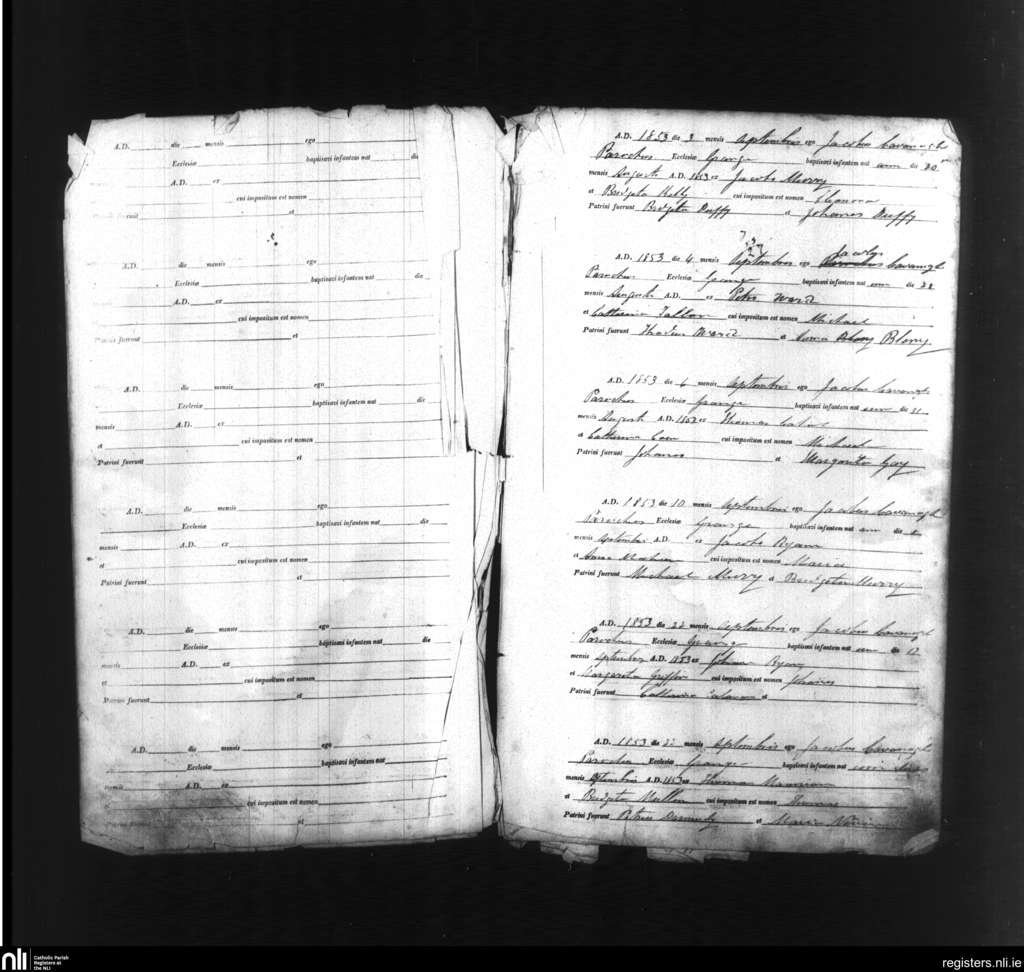 A.D. die mensis ego
Ecclesiæ baptisavi infantem nat die
A.D. ex
cui impositum est nomen
et
A.D. die mensis ego
Ecclesiæ baptisavi infantem nat die
A.D. ex
cui impositum est nomen
Patrini fuerunt et
A.D. die mensis ego
Ecclesiæ baptisavi infantem nat die
mensis A.D. ex
et cui impositum est nomen
Patrini fuerunt et
A.D. die mensis ego
Ecclesiæ baptisavi infantem nat die
mensis A.D. ex
et cui impositum est nomen
Patrini fuerunt et
A.D. die mensis ego
Ecclesiæ baptisavi infantem nat die
mensis A.D. ex
et cui impositum est nomen
Patrini fuerunt et
A.D. die mensis ego
Ecclesiæ baptisavi infantem nat
mensis A.D. ex
cui impositum est nomen
et
A.D. 1853 die 3 mensis Septembris ego Jacobus Cavanagh
Parochus Ecclesiæ Grange baptisavi infantem nat die 30
mensis Augusti A.D. 1853 ex Jacobo Murry
et Bridgeta Kelly cui impositum est nomen Eleanora
Patrini fuerunt Bridgeta Duffy et Johannes Duffy
A.D. 1853 die 4 mensis Septembris ego Jacobus Cavanagh
Parochus Ecclesiæ Grange baptisavi infantem nat die 28
mensis Augusti A.D. ex Petro Ward
et Catharina Fallon cui impositum est nomen Michael
Patrini fuerunt Ward et Anna Blowy
A.D. 1853 die 6 mensis Septembris ego Jacobus Cavanagh
Parochus Ecclesiæ Grange baptisavi infantem nat die 31
mensis Augusti A.D. 1853 ex Thomas
et Catherina cui impositum est nomen Michael
Patrini fuerunt Johannes et Margarita Gay
A.D. 1853 die 10 mensis Septembris ego Jacobus Cavanagh
Parochus Ecclesiæ Grange baptisavi infantem nat die
mensis Septembris A.D. ex Jacobo Ryan
et Anna cui impositum est nomen Maria
Patrini fuerunt Michael Murry et Bridgeta Murry
A.D. 1853 die 22 mensis Septembris ego Jacobus Cavanagh
Parochus Ecclesiæ Grange baptisavi infantem nat die 12
mensis Septembris A.D. 1853 ex Ryan
et Margarita Griffin cui impositum est nomen
Patrini fuerunt Catharina et
A.D. 1853 die 22 mensis Septembris ego Jacobus Cavanagh
Parochus Ecclesiæ Grange baptisavi infantem nat
mensis Septembris A.D. 1853 ex Thomas
et Bridgeta cui impositum est nomen Thomas
Patrini fuerunt et Maria
nli Catholic Parish
Registers at
the NLI
registers.nli.ie